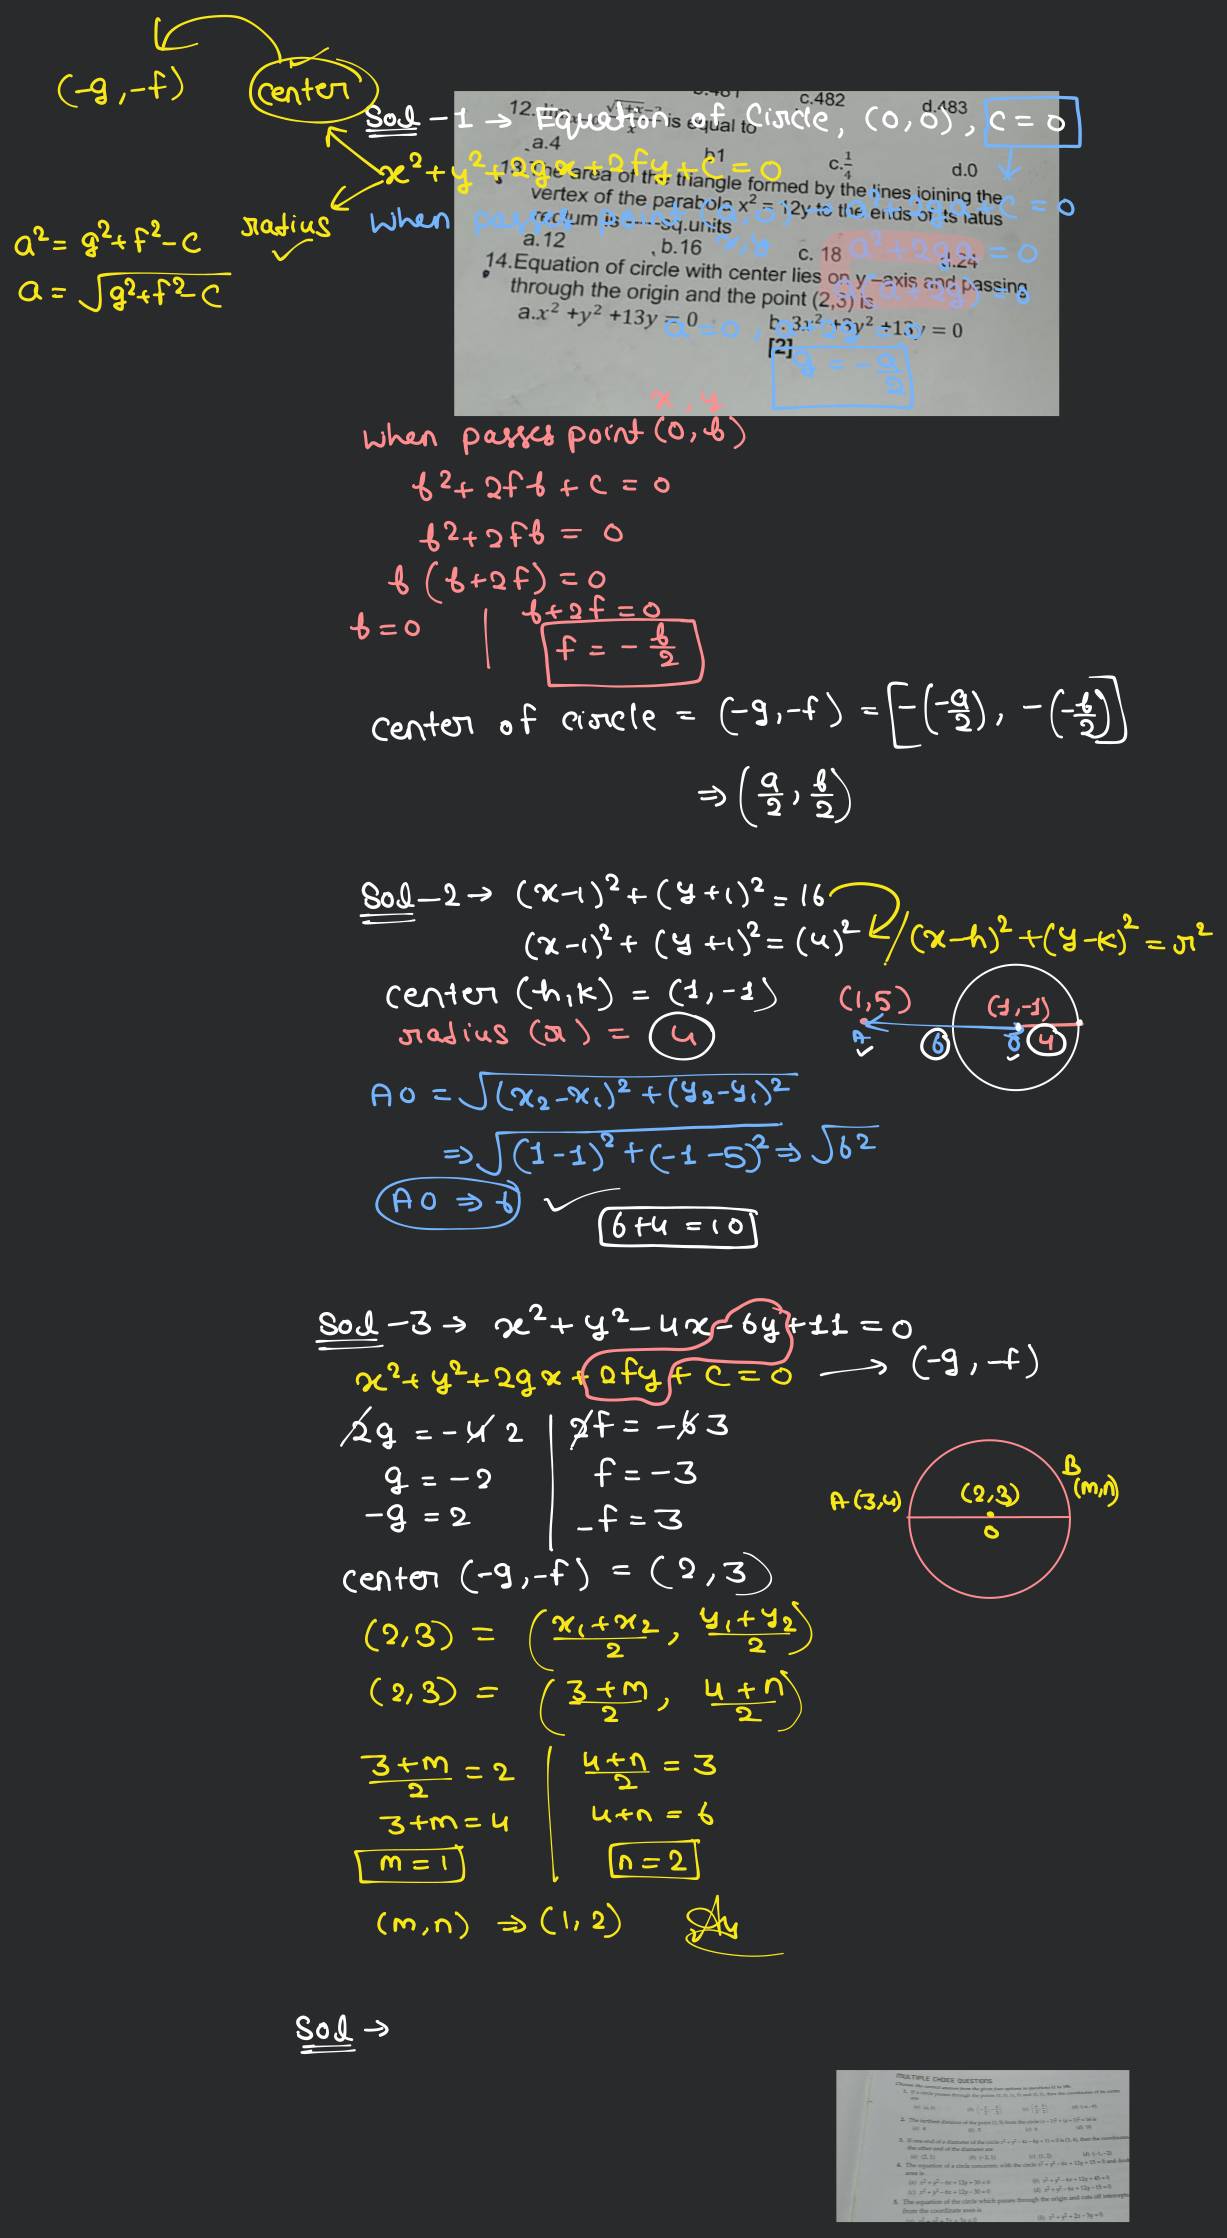 (-g,-f) center
Sol-1 → Equation of Circle, (0,0), C=0
x²+y²+2gx+2fy+C=0
radius
a²=g²+f²-c
a=√g²+f²-c
When passes point (a,0) → a²+2ga+C=0
x,y
a²+2ga=0
a(a+2g)=0
a=0, a+2g=0
g=-a/2
c.482 d.483
is equal to
a.4 b1 c.1/4 d.0
13.The area of the triangle formed by the lines joining the
vertex of the parabola x² = 12y to the ends of its latus
rectum is sq.units
a.12 b.16 c. 18 d.24
14.Equation of circle with center lies on y –axis and passing
through the origin and the point (2,3) is
a.x² +y² +13y = 0 b. 3x² +3y² +13y = 0
[2]
x,y
When passes point (0,b)
b²+2fb+C=0
b²+2fb=0
b(b+2f)=0
b=0 | b+2f=0
f=-b/2
center of circle = (-g,-f) = [-(-a/2), -(-b/2)]
⇒ (a/2, b/2)
Sol-2 → (x-1)²+(y+1)²=16
(x-1)²+(y+1)²=(4)² / (x-h)²+(y-k)²=r²
center (h,k) = (1,-1)
radius (r) = 4
(1,5) (1,-1)
A 6 O 4
AO=√(x₂-x₁)²+(y₂-y₁)²
⇒√(1-1)²+(-1-5)² ⇒ √6²
AO ⇒ 6
6+4=10
Sol-3 → x²+y²-4x-6y+11=0
x²+y²+2gx+2fy+C=0 → (-g,-f)
2g=-4 2 | 2f=-6 3
g=-2 | f=-3
-g=2 | -f=3
A(3,4) (2,3) O B (m,n)
center (-g,-f) = (2,3)
(2,3) = (x₁+x₂/2, y₁+y₂/2)
(2,3) = (3+m/2, 4+n/2)
3+m/2=2 | 4+n/2=3
3+m=4 | 4+n=6
m=1 | n=2
(m,n) ⇒ (1,2)
Sol →
MULTIPLE CHOICE QUESTIONS